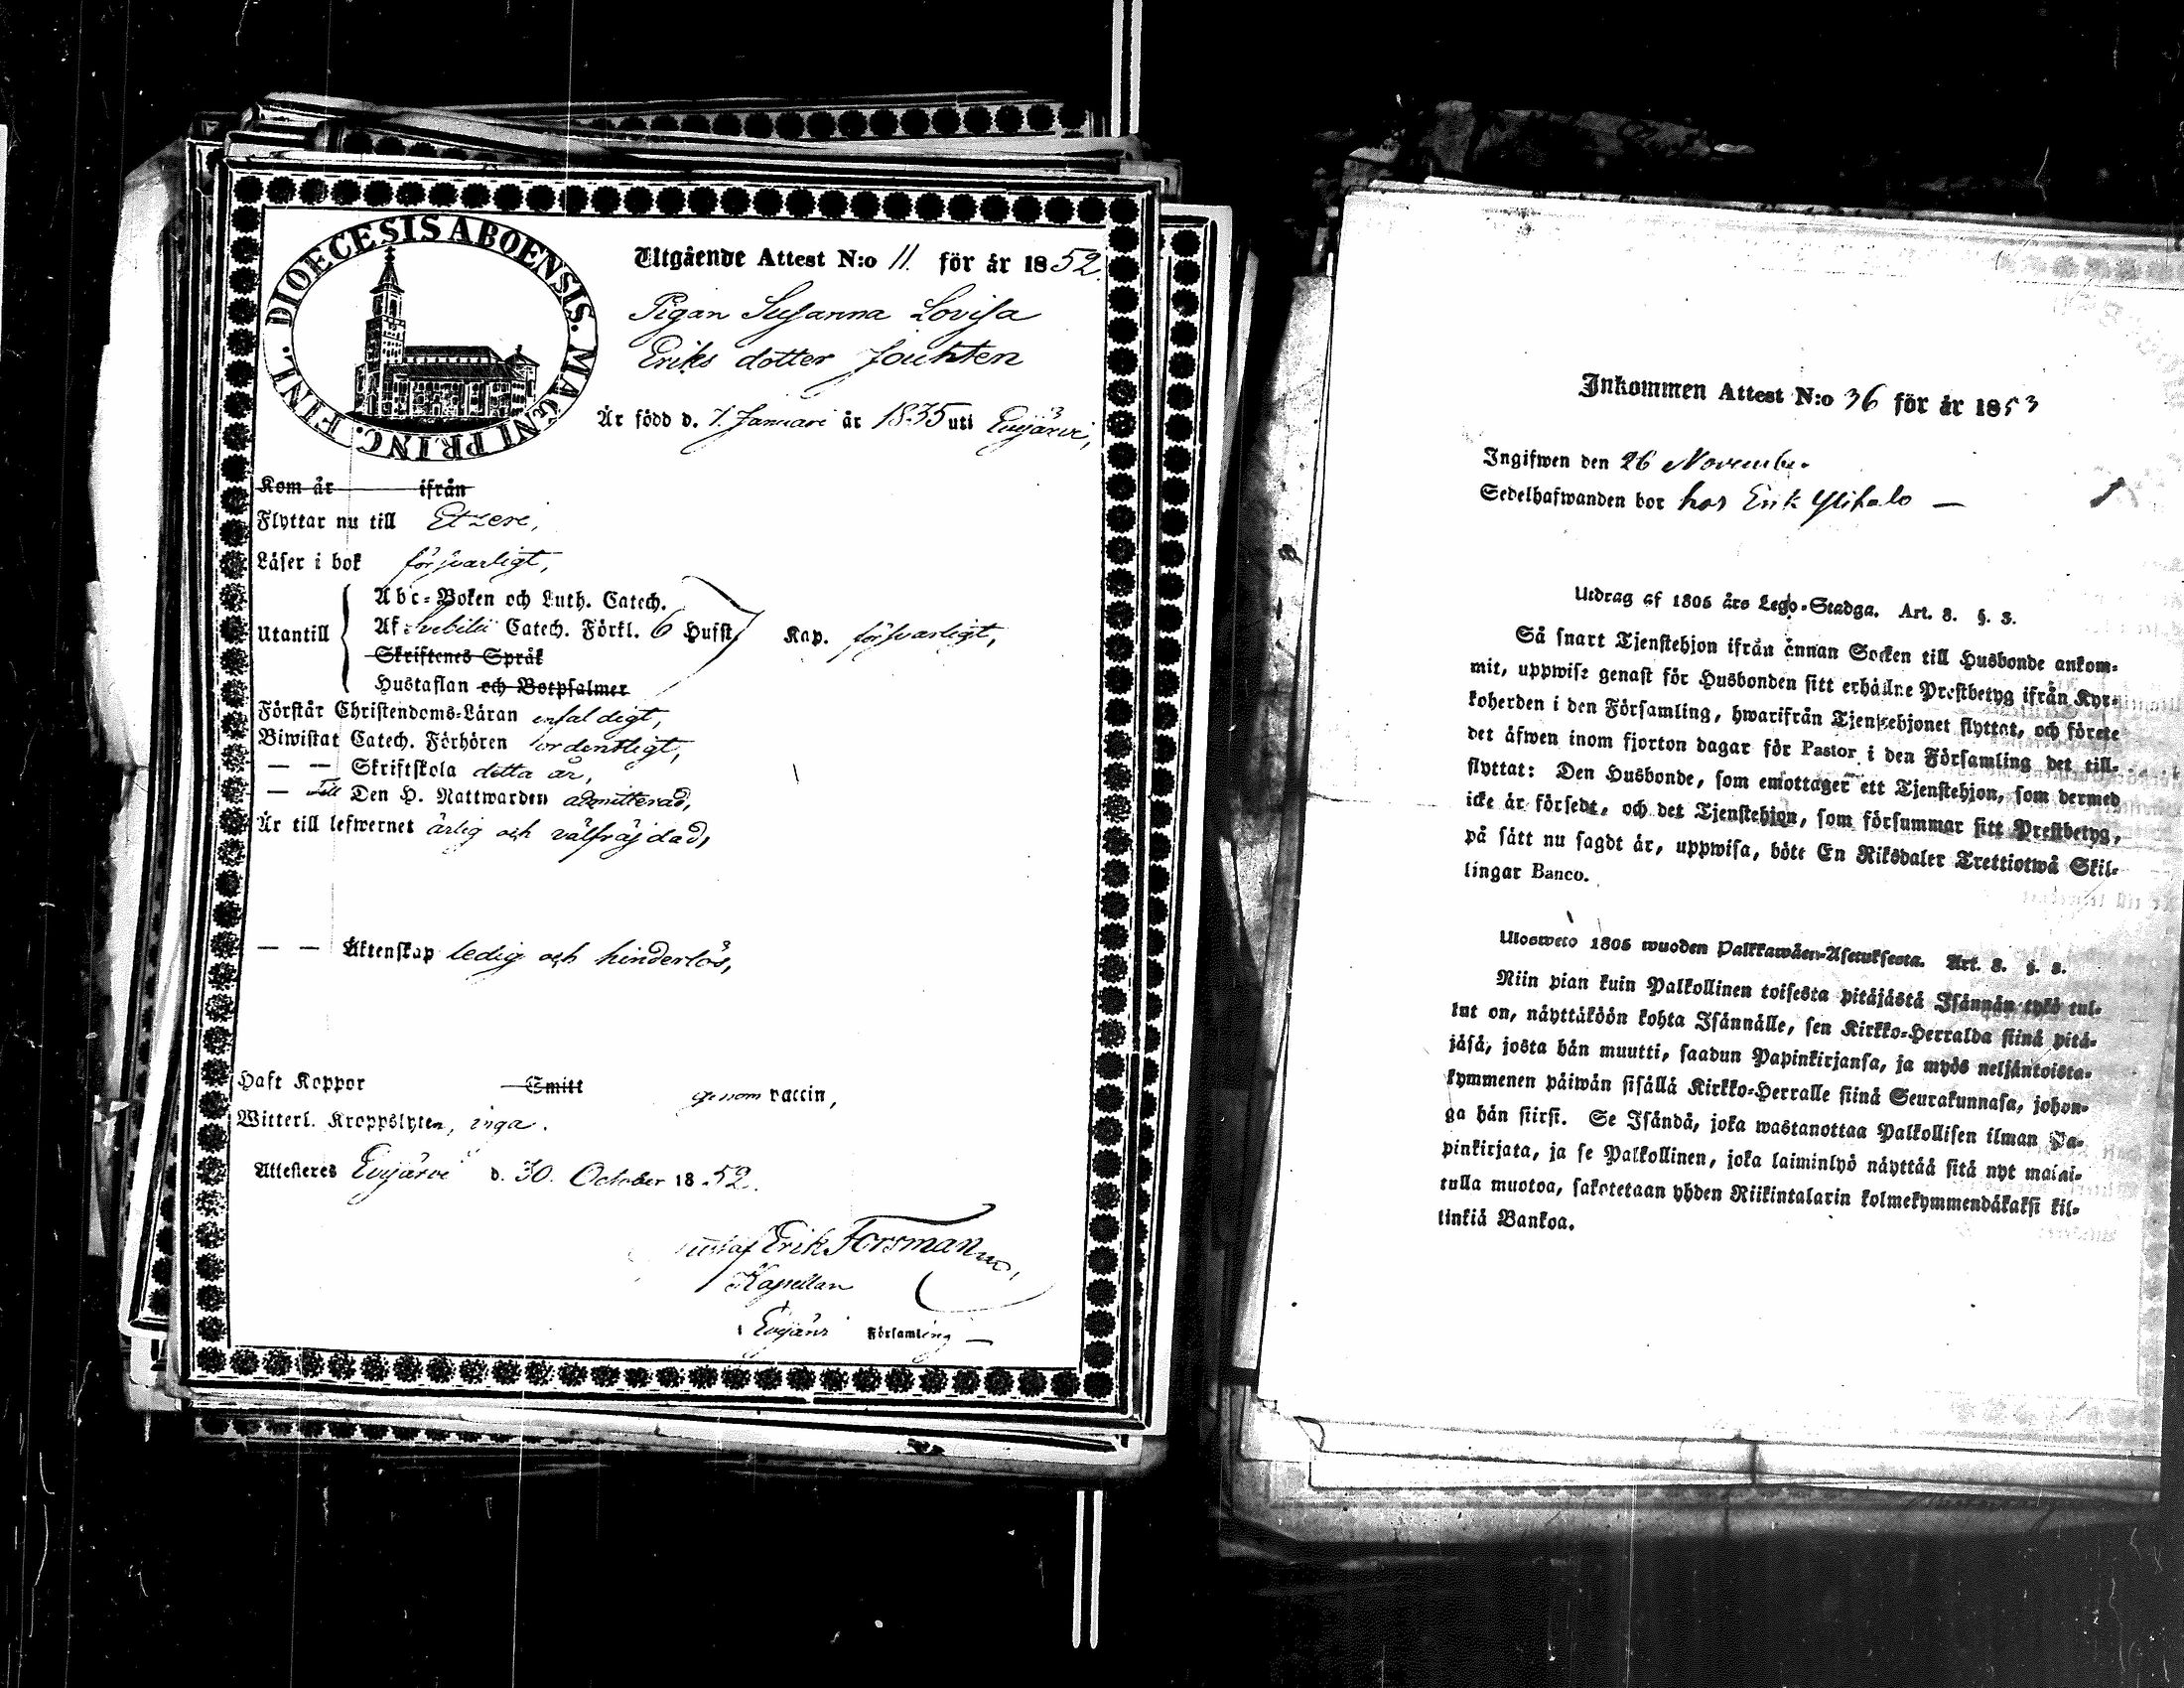 DIOECESIS ABOENSIS. MAGNI PRINC. FINL.
Utgående Attest N:o 11. för år 1852.
Pigan Susanna Lovisa
Eriks dotter
Är född d. 7. Januari år 1835 uti Evijärvi,
Kom år ifrån
Flyttar nu till Etzeri,
Läser i bok försvarligt,
Utantill
Abc-Boken och Luth. Catech.
Af Svebilii Catech. Förkl. 6 Hufst. Kap. försvarligt,
Skriftenes Språk
Hustaflan och Botpsalmer
Förstår Christendoms-Läran enfaldigt,
Biwistat Catech. Förhören ordentligt,
— — Skriftskola detta år,
— Till Den H. Nattwarden admitterad,
Är till lefwernet ärlig och välfräjdad,
— — Äktenskap ledig och hinderlös,
Haft Koppor Smitt genom vaccin,
Witterl. Kroppslyten, inga.
Attesteres Evijärvi d. 30. October 1852.
Gustaf Erik Forsman
Kapellan
i Evijärvi Församling —
Inkommen Attest N:o 36 för år 1853
Ingifwen den 26 November
Sedelhafwanden bor hos Erik Ylihalo —
Utdrag af 1805 års Lego-Stadga. Art. 8. §. 3.
Så snart Tjenstehjon ifrån annan Socken till Husbonde ankom-
mit, uppwise genast för Husbonden sitt erhållne Prestbetyg ifrån Kyr-
koherden i den Församling, hwarifrån Tjenstehjonet flyttat, och förete
det äfwen inom fjorton dagar för Pastor i den Församling det till-
flyttat: Den Husbonde, som emottager ett Tjenstehjon, som dermed
icke är försedt, och det Tjenstehjon, som försummar sitt Prestbetyg,
på sätt nu sagdt är, uppwisa, böte En Riksdaler Trettiotwå Skil-
lingar Banco.
Ulosweto 1805 wuoden Palkkawäen-Asetuksesta. Art. 8. §. 3.
Niin pian kuin Palkollinen toisesta pitäjästä Isännän tykö tul-
lut on, näyttäköön kohta Isännälle, sen Kirkko-Herralda siinä pitä-
jäsä, josta hän muutti, saadun Papinkirjansa, ja myös neljäntoista-
kymmenen päiwän sisällä Kirkko-Herralle siinä Seurakunnasa, johon-
ga hän siirsi. Se Isändä, joka wastanottaa Palkollisen ilman Pa-
pinkirjata, ja se Palkollinen, joka laiminlyö näyttää sitä nyt mainit-
tulla muotoa, sakotetaan yhden Riikintalarin kolmekymmendäkaksi kil-
linkiä Bankoa.